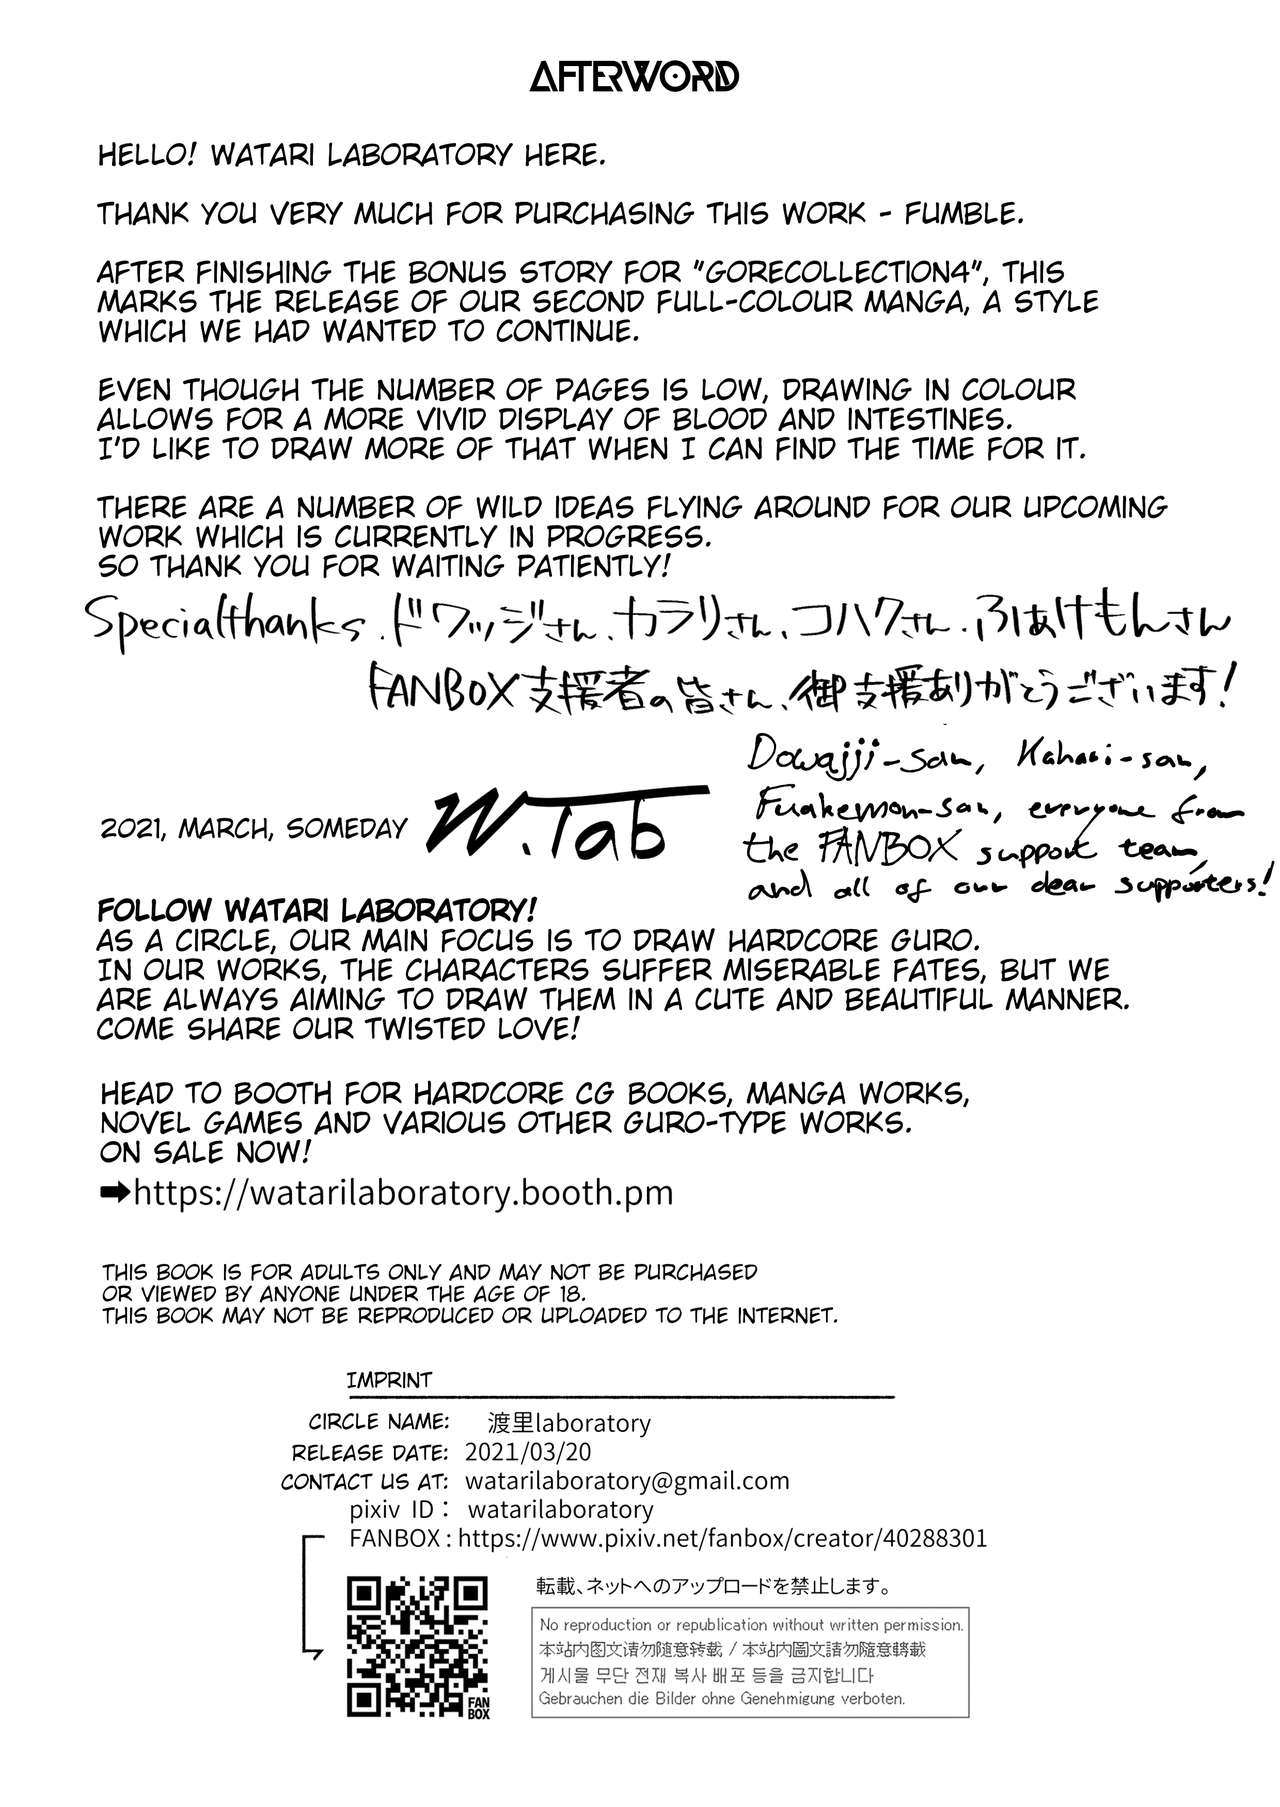 AFTERWORD
HELLO! WATARI LABORATORY HERE.
THANK YOU VERY MUCH FOR PURCHASING THIS WORK - FUMBLE.
AFTER FINISHING THE BONUS STORY FOR "GORECOLLECTION4", THIS
MARKS THE RELEASE OF OUR SECOND FULL-COLOUR MANGA, A STYLE
WHICH WE HAD WANTED TO CONTINUE.
EVEN THOUGH THE NUMBER OF PAGES IS LOW, DRAWING IN COLOUR
ALLOWS FOR A MORE VIVID DISPLAY OF BLOOD AND INTESTINES.
I'D LIKE TO DRAW MORE OF THAT WHEN I CAN FIND THE TIME FOR IT.
THERE ARE A NUMBER OF WILD IDEAS FLYING AROUND FOR OUR UPCOMING
WORK WHICH IS CURRENTLY IN PROGRESS.
SO THANK YOU FOR WAITING PATIENTLY!
Specialthanks.ドワッジさん、カラリさん、コハクさん.ふぁけもんさん
FANBOX支援者の皆さん、御支援ありがとうございます!
Dowajji-san, Kahari-san,
Fuakemon-san, everyone from
the FANBOX support team,
and all of our dear supporters!
2021, MARCH, SOMEDAY W.lab
FOLLOW WATARI LABORATORY!
AS A CIRCLE, OUR MAIN FOCUS IS TO DRAW HARDCORE GURO.
IN OUR WORKS, THE CHARACTERS SUFFER MISERABLE FATES, BUT WE
ARE ALWAYS AIMING TO DRAW THEM IN A CUTE AND BEAUTIFUL MANNER.
COME SHARE OUR TWISTED LOVE!
HEAD TO BOOTH FOR HARDCORE CG BOOKS, MANGA WORKS,
NOVEL GAMES AND VARIOUS OTHER GURO-TYPE WORKS.
ON SALE NOW!
➡https://watarilaboratory.booth.pm
THIS BOOK IS FOR ADULTS ONLY AND MAY NOT BE PURCHASED
OR VIEWED BY ANYONE UNDER THE AGE OF 18.
THIS BOOK MAY NOT BE REPRODUCED OR UPLOADED TO THE INTERNET.
IMPRINT
CIRCLE NAME: 渡里laboratory
RELEASE DATE: 2021/03/20
CONTACT US AT: watarilaboratory@gmail.com
pixiv ID : watarilaboratory
FANBOX : https://www.pixiv.net/fanbox/creator/40288301
FAN
BOX
転載、ネットへのアップロードを禁止します。
No reproduction or republication without written permission.
本站内图文请勿随意转载 / 本站內圖文請勿隨意轉載
게시물 무단 전재 복사 배포 등을 금지합니다
Gebrauchen die Bilder ohne Genehmigung verboten.